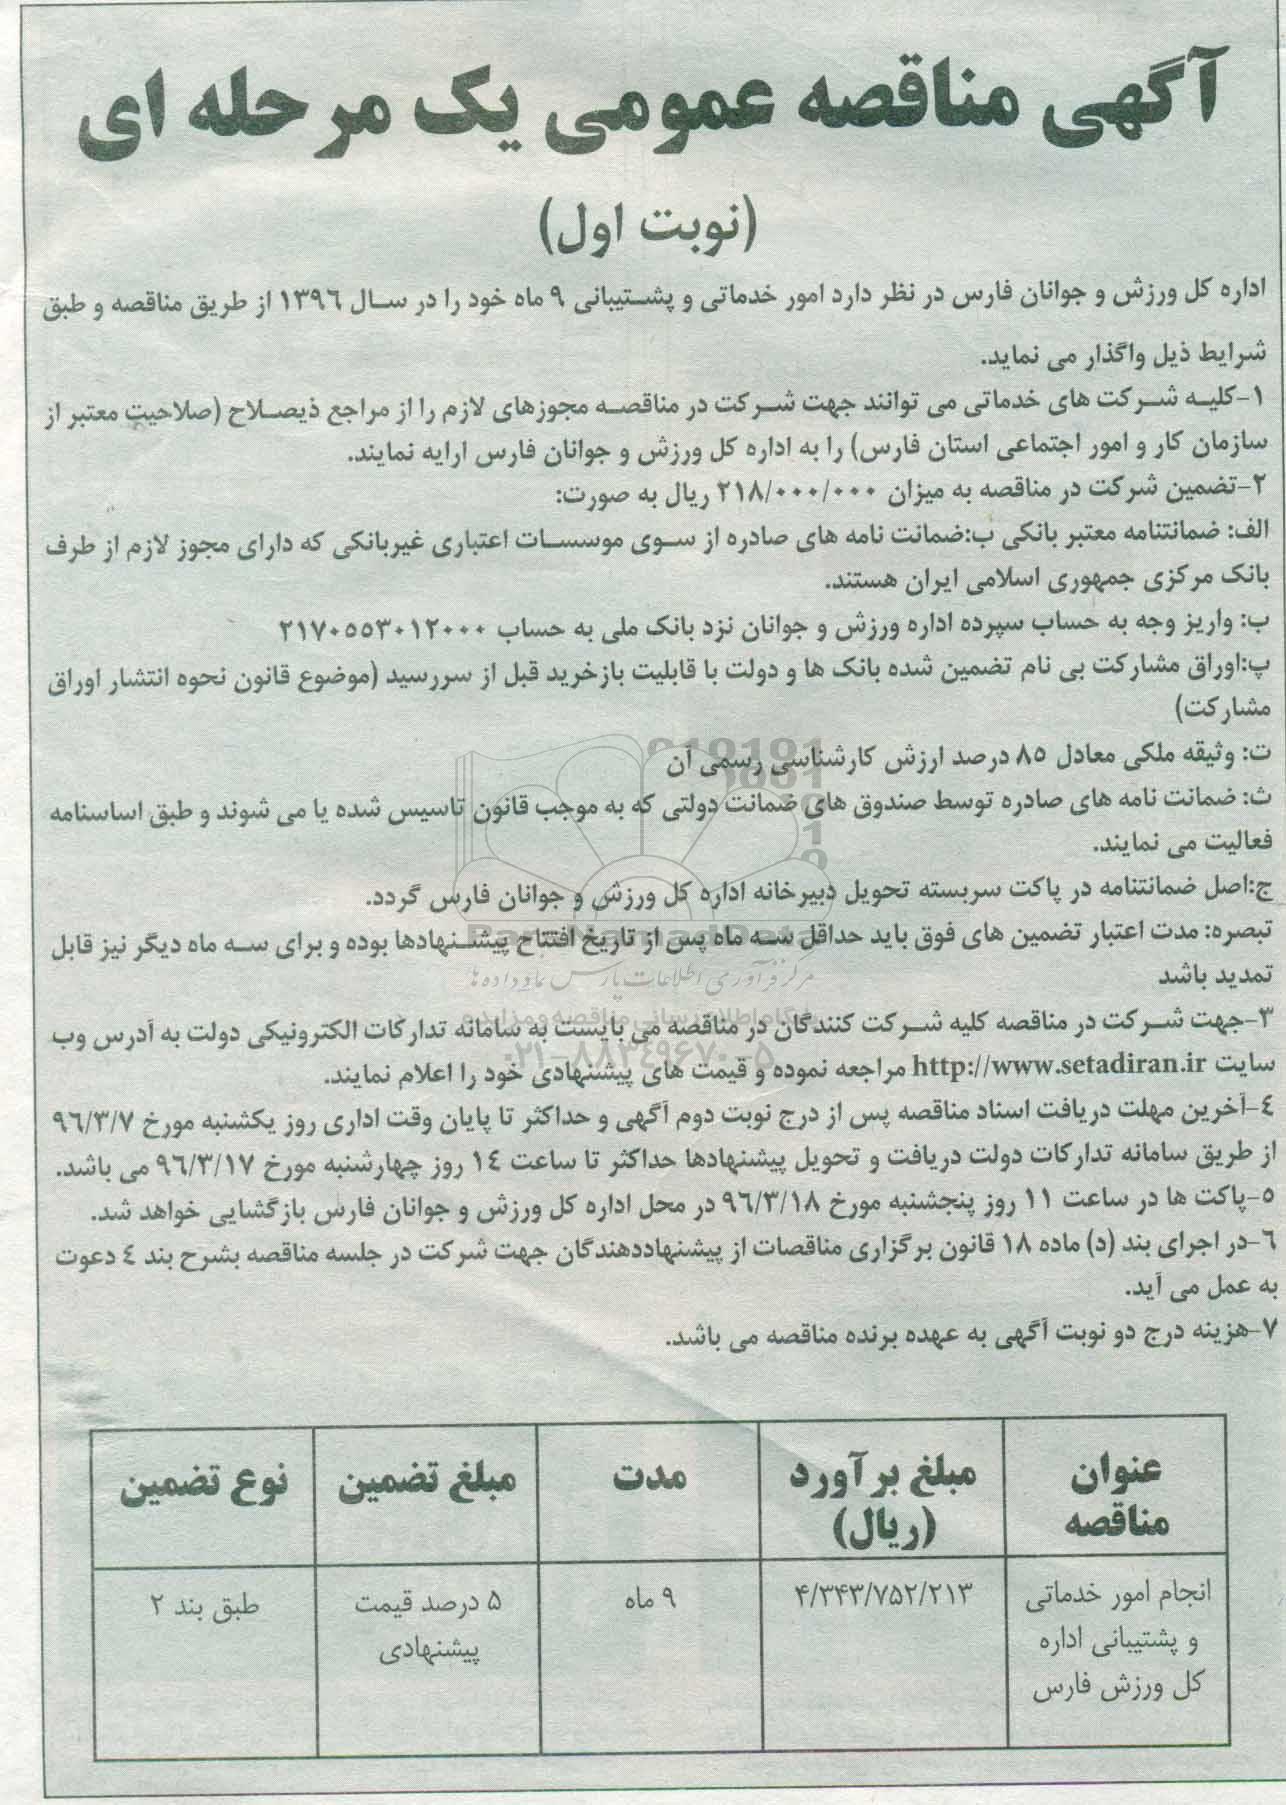 آگهی مناقصه عمومی یک مرحله ای
(نوبت اول)
اداره کل ورزش و جوانان فارس در نظر دارد امور خدماتی و پشتیبانی ۹ ماه خود را در سال ۱۳۹۶ از طریق مناقصه و طبق
شرایط ذیل واگذار می نماید.
۱-کلیه شرکت های خدماتی می توانند جهت شرکت در مناقصه مجوزهای لازم را از مراجع ذیصلاح (صلاحیت معتبر از
سازمان کار و امور اجتماعی استان فارس) را به اداره کل ورزش و جوانان فارس ارایه نمایند.
۲-تضمین شرکت در مناقصه به میزان ۲۱۸/۰۰۰/۰۰۰ ریال به صورت:
الف: ضمانتنامه معتبر بانکی ب:ضمانت نامه های صادره از سوی موسسات اعتباری غیربانکی که دارای مجوز لازم از طرف
بانک مرکزی جمهوری اسلامی ایران هستند.
ب: واریز وجه به حساب سپرده اداره ورزش و جوانان نزد بانک ملی به حساب ۲۱۷۰۵۵۳۰۱۲۰۰۰
پ:اوراق مشارکت بی نام تضمین شده بانک ها و دولت با قابلیت بازخرید قبل از سررسید (موضوع قانون نحوه انتشار اوراق
مشارکت)
ت: وثیقه ملکی معادل ۸۵ درصد ارزش کارشناسی رسمی آن
ث: ضمانت نامه های صادره توسط صندوق های ضمانت دولتی که به موجب قانون تاسیس شده یا می شوند و طبق اساسنامه
فعالیت می نمایند.
ج:اصل ضمانتنامه در پاکت سربسته تحویل دبیرخانه اداره کل ورزش و جوانان فارس گردد.
تبصره: مدت اعتبار تضمین های فوق باید حداقل سه ماه پس از تاریخ افتتاح پیشنهادها بوده و برای سه ماه دیگر نیز قابل
تمدید باشد
مرکز فرآوری اطلاعات پارس نماد داده ها
پایگاه اطلاع رسانی مناقصه و مزایده
۰۲۱-۸۸۳۴۹۶۷۰-۵
۳-جهت شرکت در مناقصه کلیه شرکت کنندگان در مناقصه می بایست به سامانه تدارکات الکترونیکی دولت به آدرس وب
سایت http://www.setadiran.ir مراجعه نموده و قیمت های پیشنهادی خود را اعلام نمایند.
۴-آخرین مهلت دریافت اسناد مناقصه پس از درج نوبت دوم آگهی و حداکثر تا پایان وقت اداری روز یکشنبه مورخ ۹۶/۳/۷
از طریق سامانه تدارکات دولت دریافت و تحویل پیشنهادها حداکثر تا ساعت ۱۴ روز چهارشنبه مورخ ۹۶/۳/۱۷ می باشد.
۵-پاکت ها در ساعت ۱۱ روز پنجشنبه مورخ ۹۶/۳/۱۸ در محل اداره کل ورزش و جوانان فارس بازگشایی خواهد شد.
۶-در اجرای بند (د) ماده ۱۸ قانون برگزاری مناقصات از پیشنهاددهندگان جهت شرکت در جلسه مناقصه بشرح بند ۴ دعوت
به عمل می آید.
۷-هزینه درج دو نوبت آگهی به عهده برنده مناقصه می باشد.
عنوان مناقصه
مبلغ برآورد (ریال)
مدت
مبلغ تضمین
نوع تضمین
انجام امور خدماتی و پشتیبانی اداره کل ورزش فارس
۴/۳۴۳/۷۵۲/۲۱۳
۹ ماه
۵ درصد قیمت پیشنهادی
طبق بند ۲